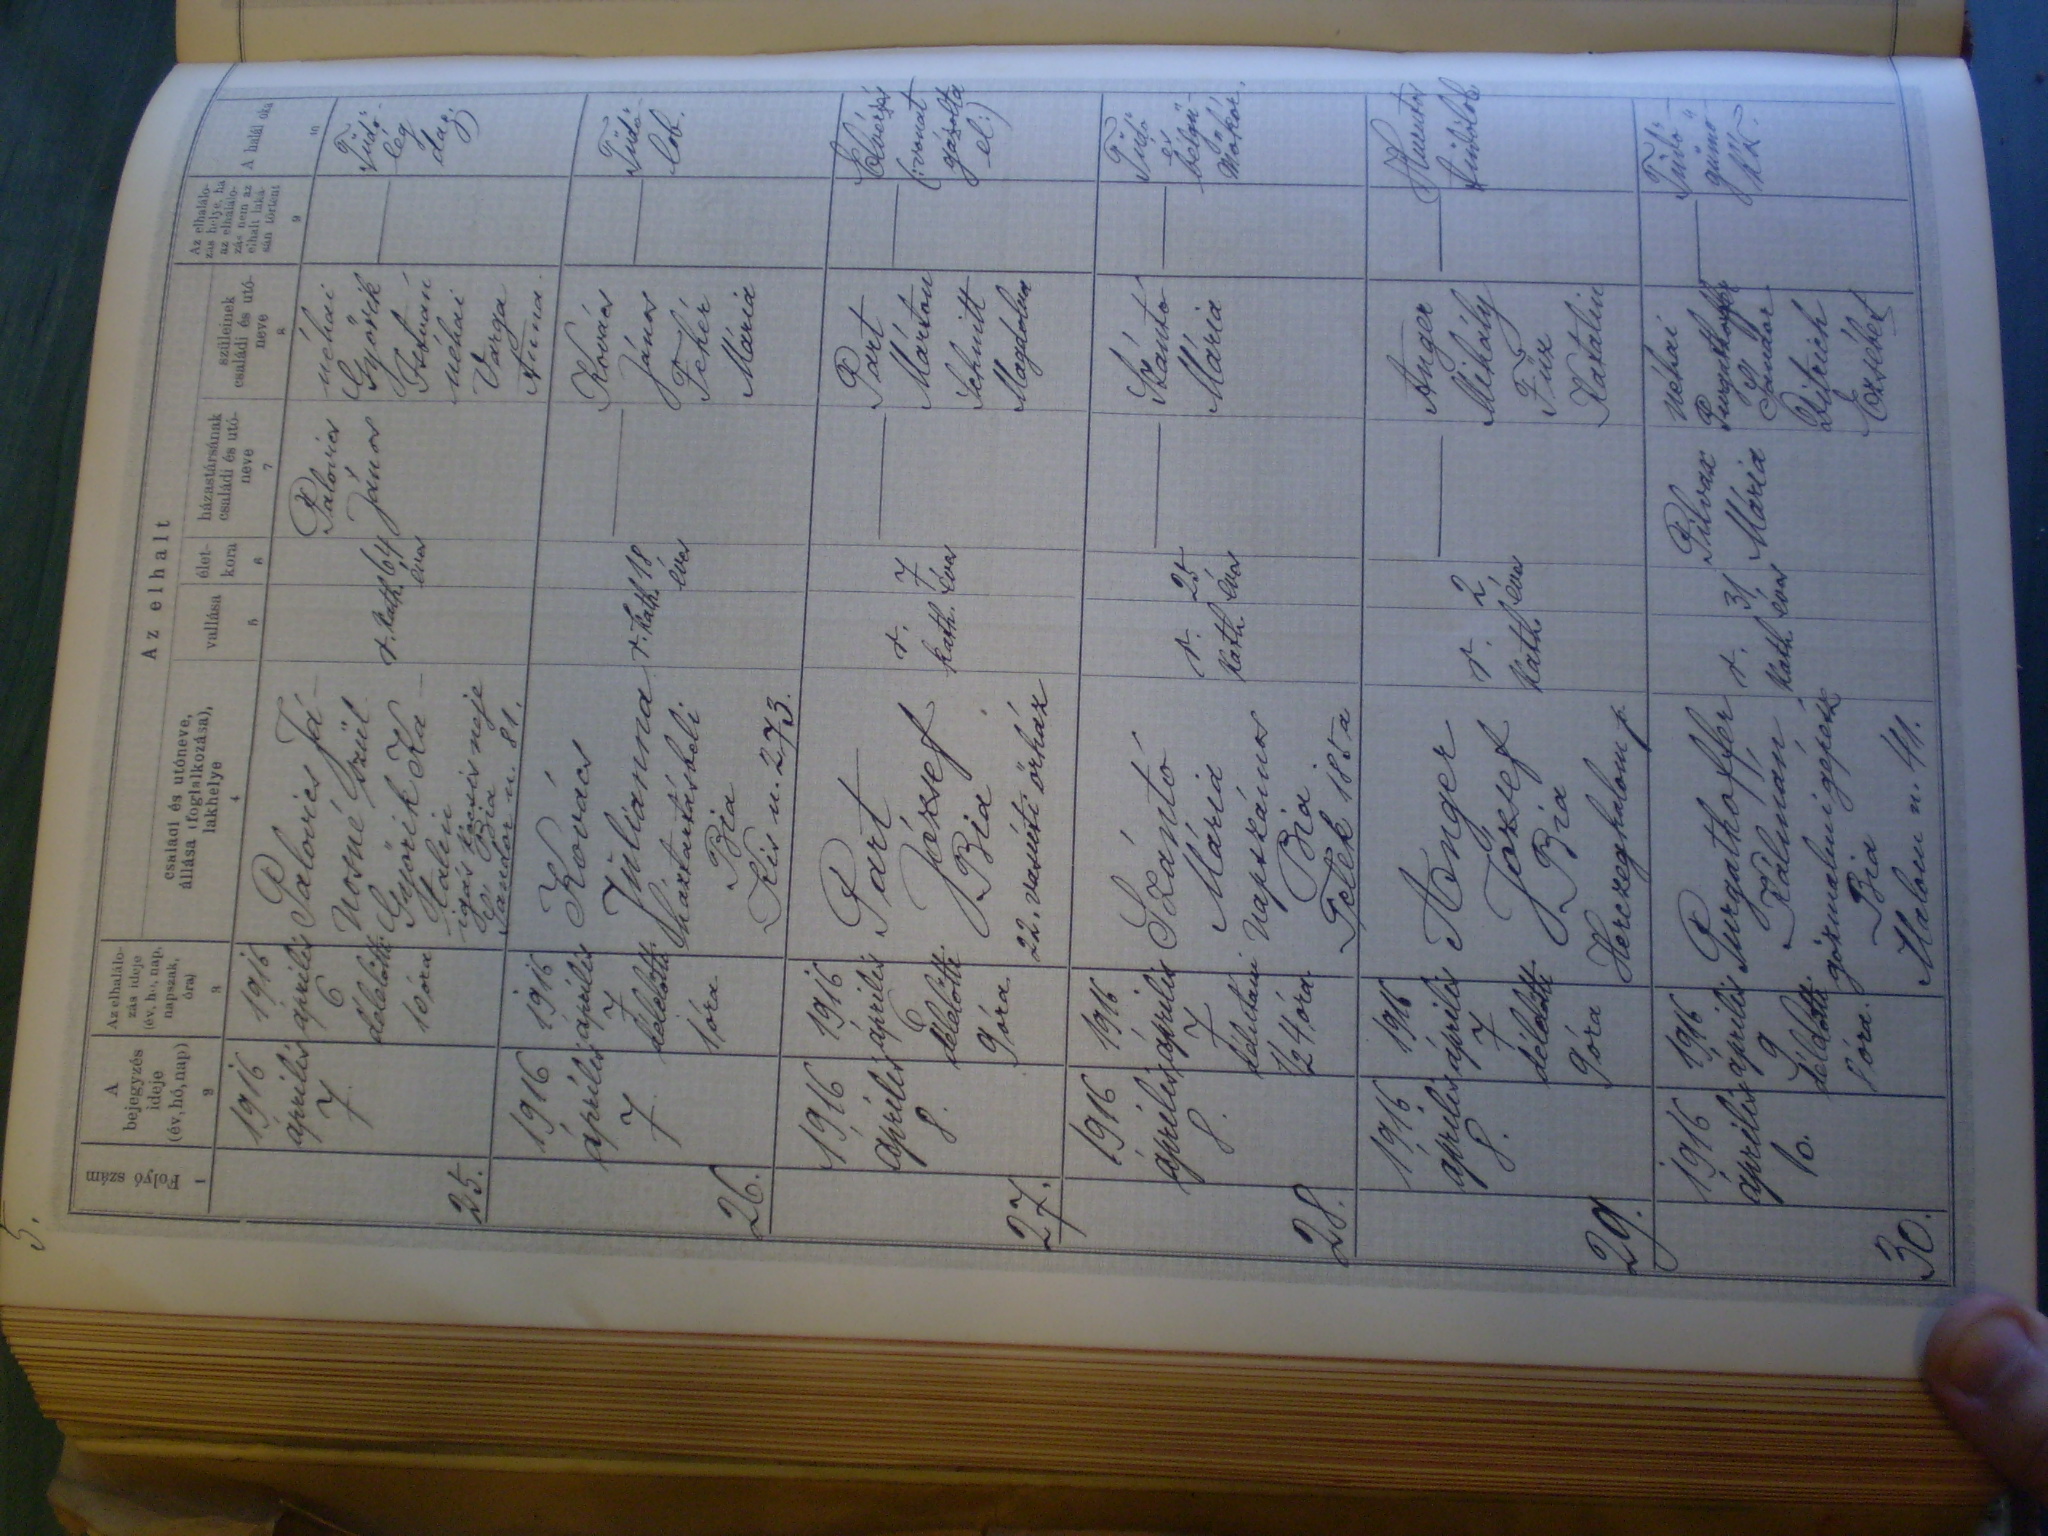 5.
Az elhalt
Folyó szám
A bejegyzés ideje (év, hó, nap)
Az elhalálozás ideje (év, hó, nap, napszak, óra)
családi és utóneve, állása (foglalkozása), lakhelye
vallása
életkora
házastársának családi és utóneve
szüleinek családi és utóneve
Az elhalálozás helye, ha az elhalálozás nem az elhalt lakásán történt
A halál oka
1
2
3
4
5
6
7
8
9
10
25.
1916
április
7.
1916
április
6
délelőtt
10 óra
Palovics Já-
nosné szül.
Györik Ka-
talin
igás kocsis neje
Bia
Sándor u. 81.
r. kath.
64
éves
Palovics
János
néhai
Györik
István
néhai
Varga
Anna
Tüdő-
lég
dag.
26.
1916
április
7
1916
április
7
délelőtt
1 óra
Kovács
Julianna
háztartásbeli
Bia
Kis u. 273.
r. kath.
18
éves
Kovács
János
Fehér
Mária
Tüdő-
lob.
27.
1916
április
8.
1916
április
6
délelőtt
9 óra
Part
József
Bia
22. vasúti őrház
r.
kath.
7
éves
Part
Márton
Schmitt
Magdolna
Elvérzés
(:vonat
gázolta
el:)
28.
1916
április
8.
1916
április
7
délutáni
1/2 4 óra
Szántó
Mária
napszámos
Bia
Telek 185 a
r.
kath.
25
éves
Szántó
Mária
Tüdő
és
bélgü-
mőkór.
29.
1916
április
8.
1916
április
7
délelőtt
9 óra
Anger
József
Bia
Herczeghalom p.
r.
kath.
2
éves
Anger
Mihály
Füx
Katalin
Hurutos
tüdőlob
30.
1916
április
10.
1916
április
9
délelőtt
1 óra.
Purgathoffer
Kálmán
gőzmalmi gépész
Bia
Malom u. 411.
r.
kath.
31
éves
Pilvax
Mária
néhai
Purgathoffer
Sándor
Ditrich
Erzsébet
Tüdő-
gümő-